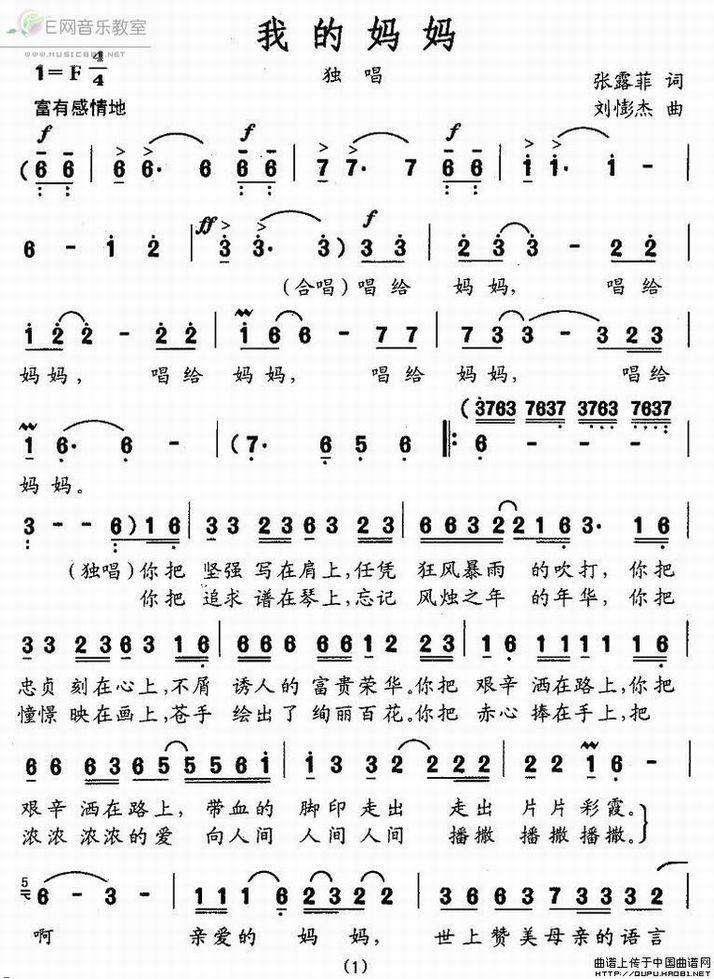 E网音乐教室
WWW.MUSIC8NN.NET
我的妈妈
1=F 4/4
独唱
张露菲 词
富有感情地
刘惵杰 曲
f f f
(6 6 | 6 6· 6 6 6 | 7 7· 7 6 6 | 1 1· 1 -
ff f
6 - 1 2 | 3 3· 3) 3 3 | 2 3 3 - 2 2
(合唱)唱给 妈妈, 唱给
1 2 2 - 2 | 1 6 6 - 7 7 | 7 3 3 - 3 2 3
妈妈, 唱给 妈妈, 唱给 妈妈, 唱给
(3763 7637 3763 7637
1 6· 6 - | (7· 6 5 6 |: 6 - - -
妈妈。
3 - - 6) 1 6 | 3 3 2 3 6 3 2 3 | 6 6 3 2 2 1 6 3· 1 6
(独唱)你把 坚强 写在肩上,任凭 狂风暴雨 的吹打, 你把
你把 追求 谱在琴上,忘记 风烛之年 的年华, 你把
3 3 2 3 6 3 1 6 | 6 6 6 6 6 1 2 2 3 | 2 1 6 1 2 3 1 6
忠贞 刻在心上,不屑 诱人的富贵荣华。你把 艰辛 洒在路上,你把
憧憬 映在画上,苍手 绘出了 绚丽百花。你把 赤心 捧在手上,把
6 6 6 3 6 5 5 5 5 6 1 | 1 3 3 2 2 2 2 | 2 2 1 6 -
艰辛 洒在路上, 带血的 脚印走出 走出 片片彩霞。
浓浓 浓浓的爱 向人间 人间人间 播撒 播撒播撒。
5
6 - 3 - | 1 1 1 6 2 3 2 2 | 3 6 6 3 7 3 3 3 2
啊 亲爱的 妈 妈, 世上赞美母亲的语言
(1)
曲谱上传于中国曲谱网
HTTP://QUPU.HAO81.NET